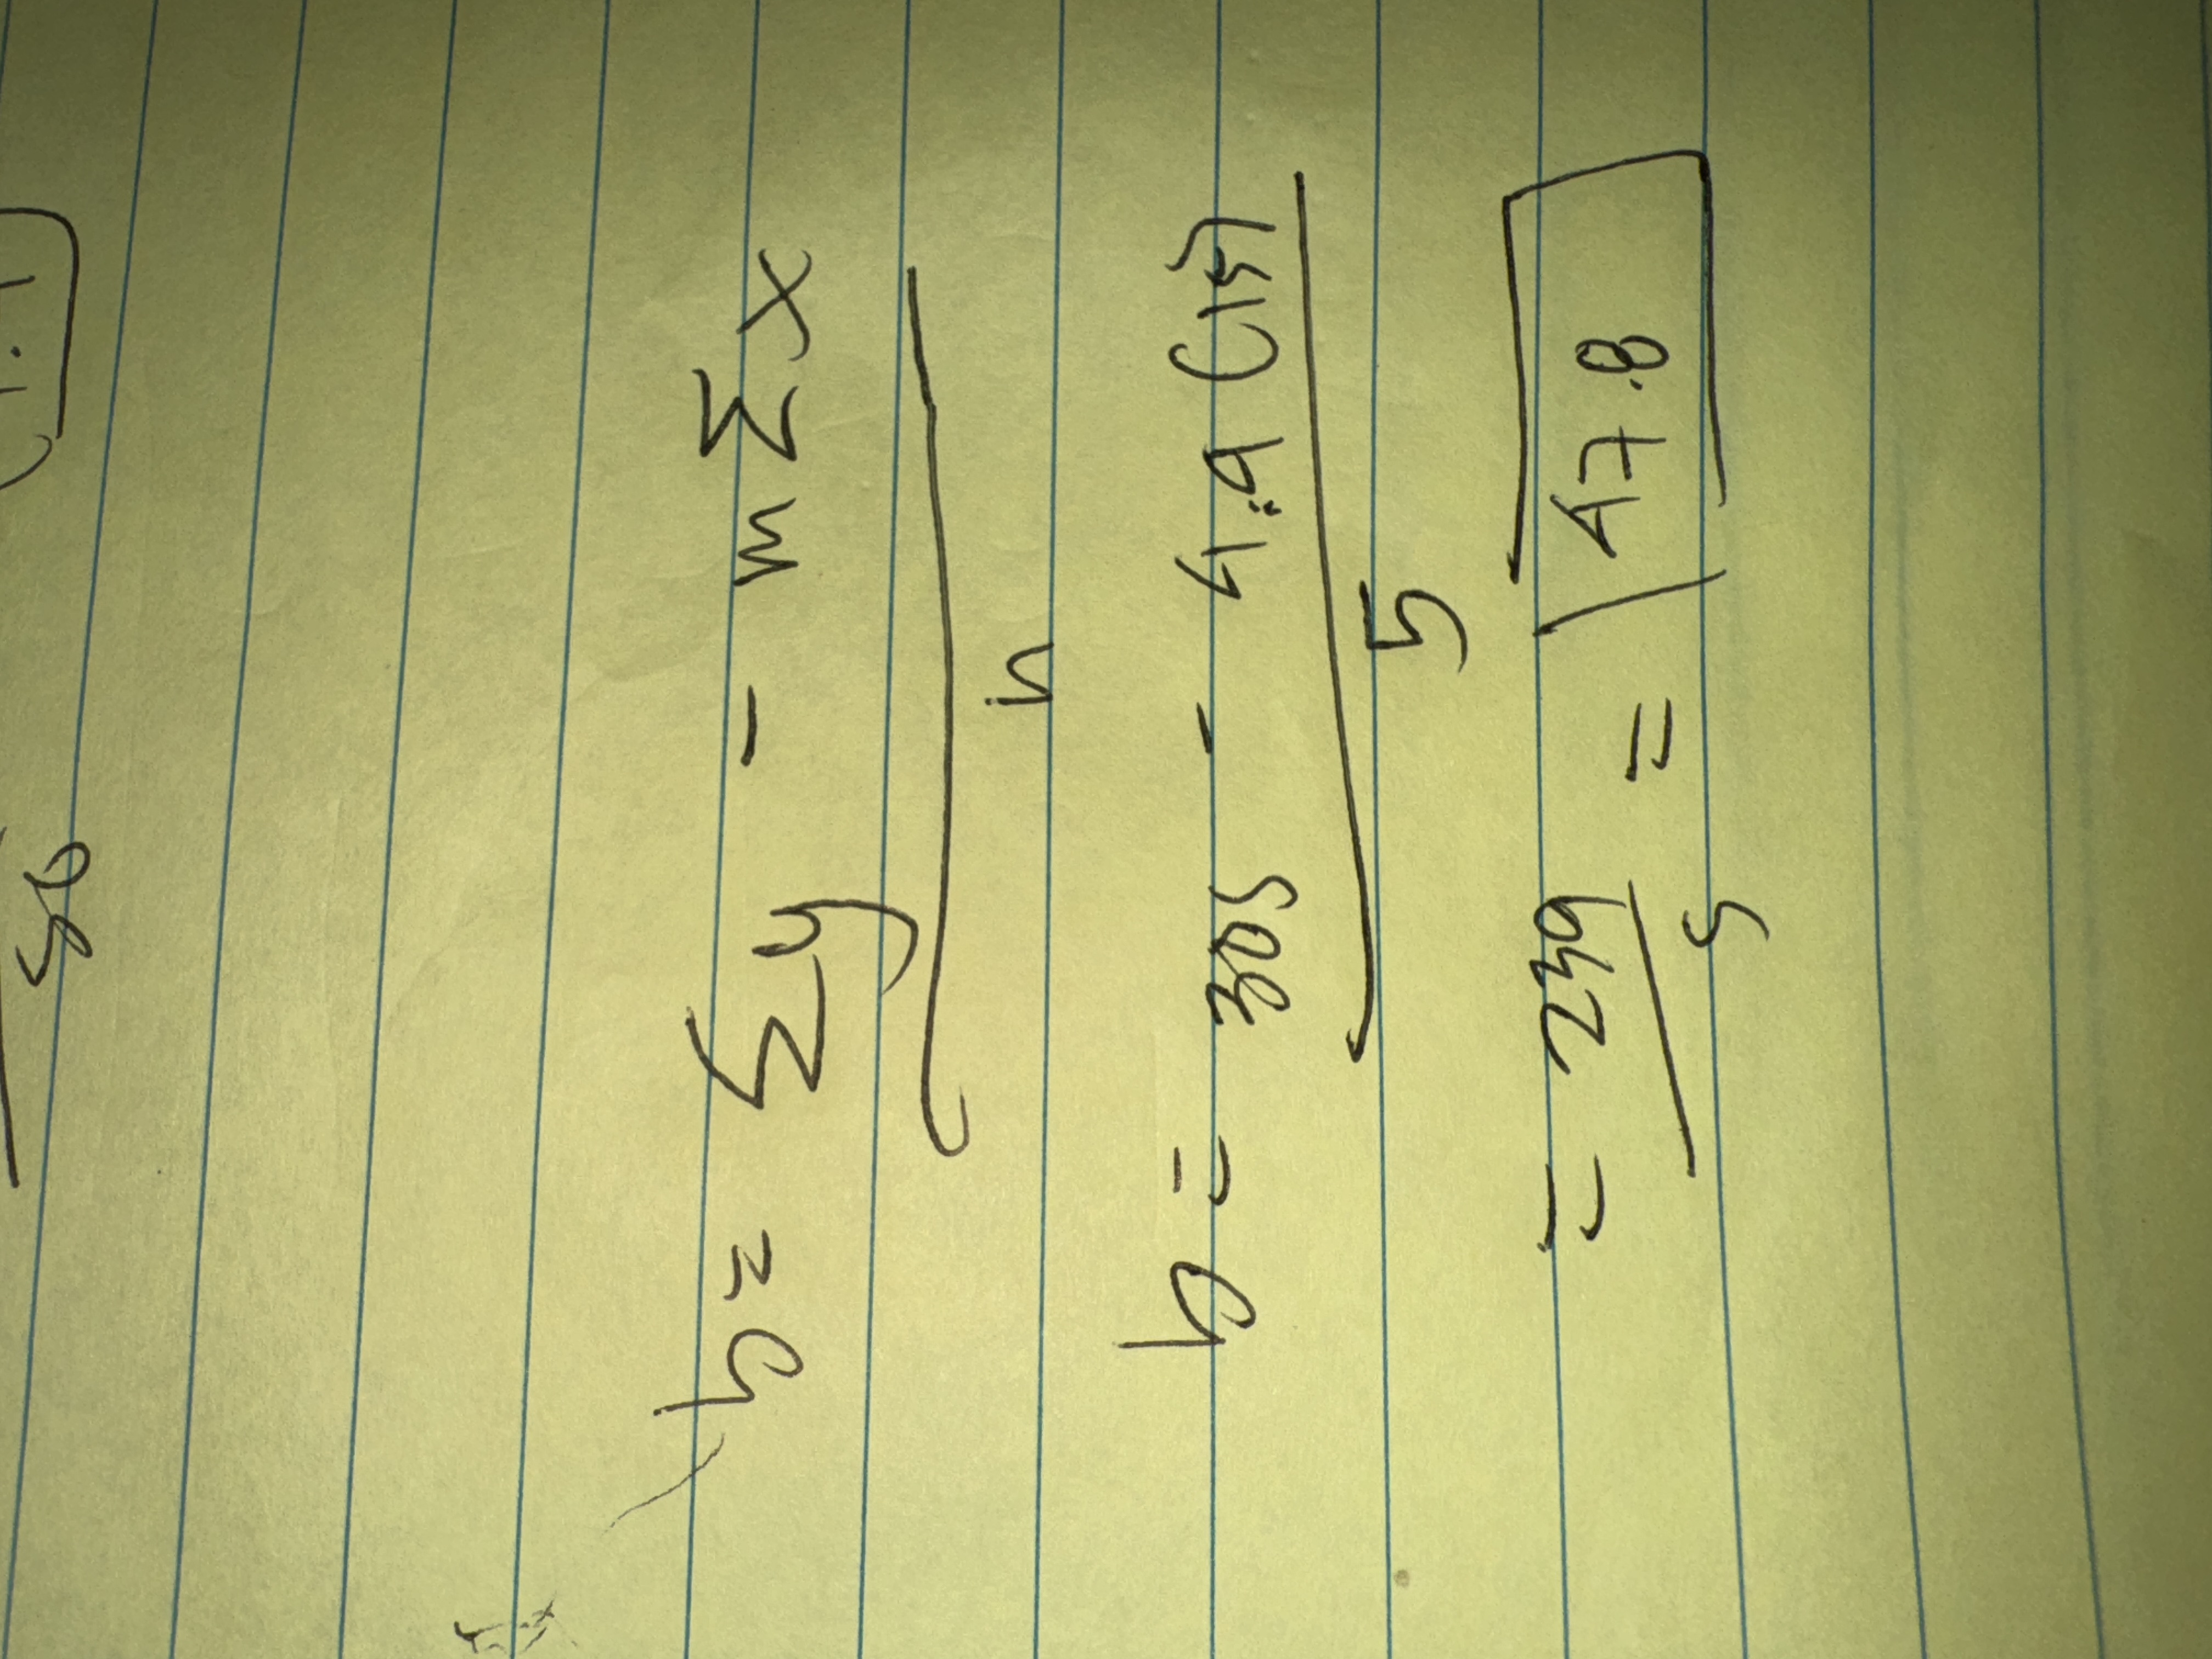 50
b = Σy - mΣx
n
b = 305 - 4.4 (15)
5
= 239
5
= 47.8